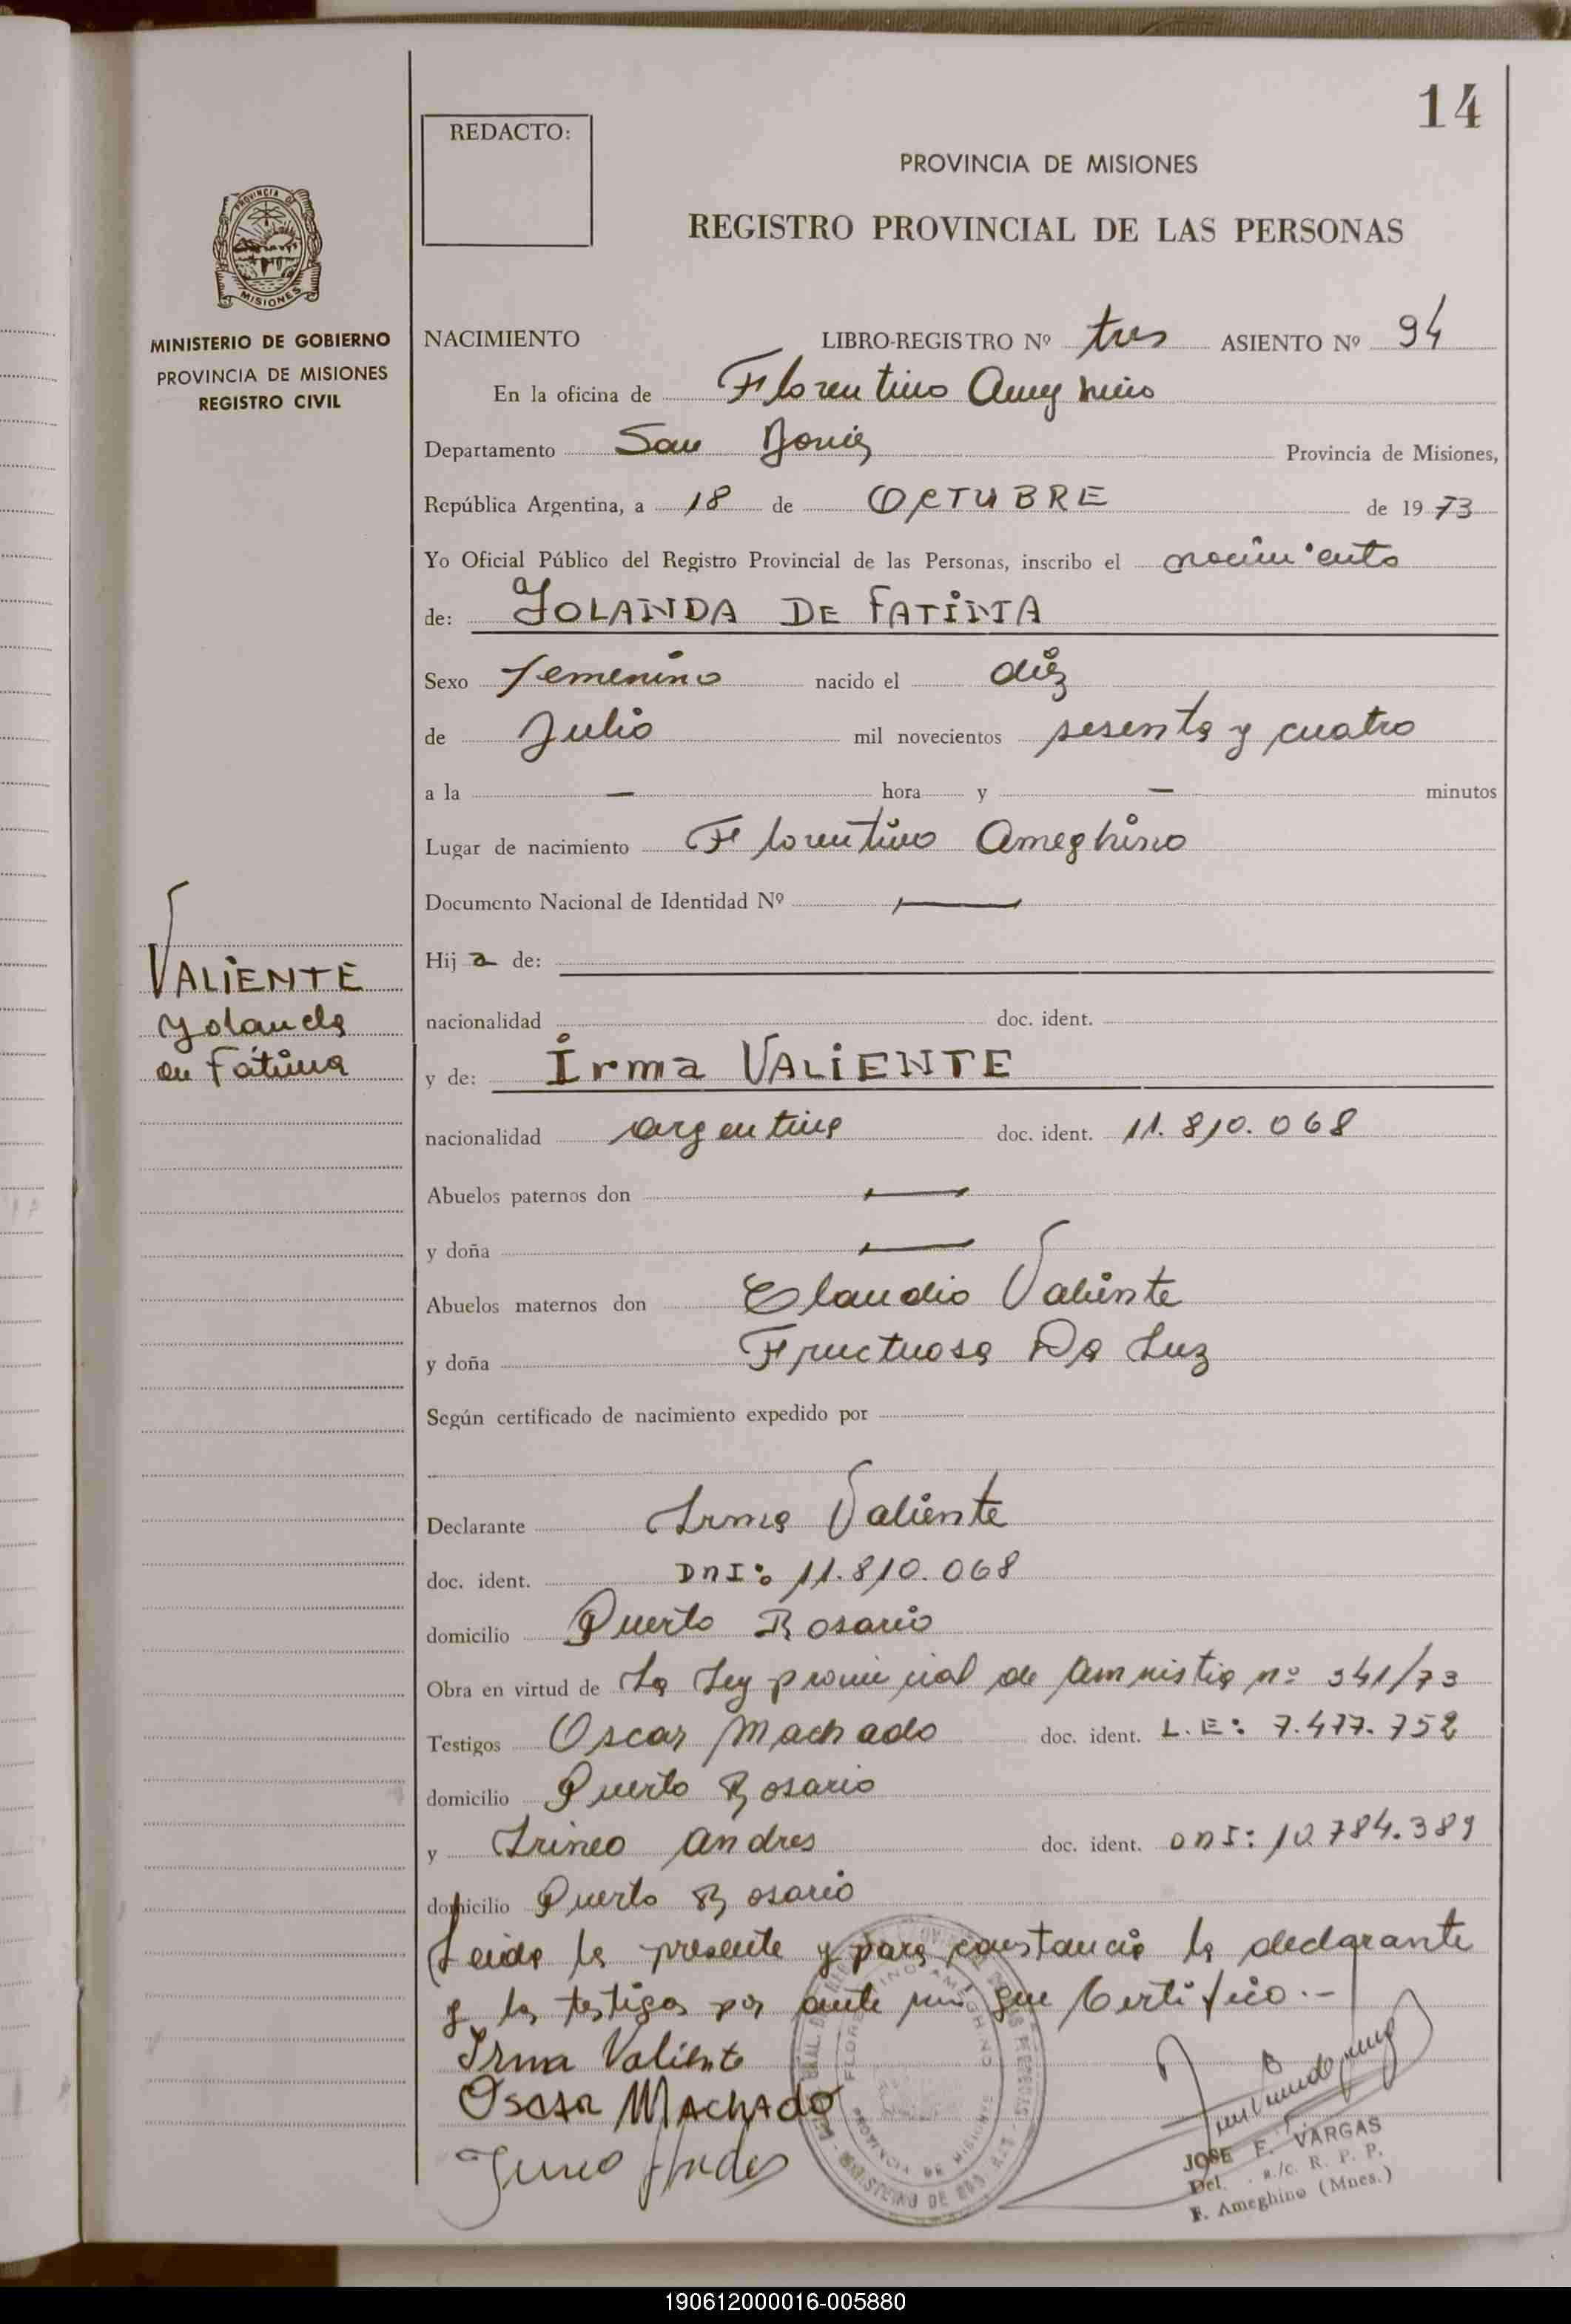 14
REDACTO:
PROVINCIA DE MISIONES
REGISTRO PROVINCIAL DE LAS PERSONAS
PROVINCIA DE
MISIONES
MINISTERIO DE GOBIERNO
PROVINCIA DE MISIONES
REGISTRO CIVIL
NACIMIENTO LIBRO-REGISTRO Nº tres ASIENTO Nº 94
En la oficina de Florentino Ameghino
Departamento San Javier Provincia de Misiones,
República Argentina, a 18 de OCTUBRE de 1973
Yo Oficial Público del Registro Provincial de las Personas, inscribo el nacimiento
de: YOLANDA DE FATIMA
Sexo femenino nacido el diez
de Julio mil novecientos sesenta y cuatro
a la — hora y — minutos
Lugar de nacimiento Florentino Ameghino
Documento Nacional de Identidad Nº —
Hij a de:
VALIENTE
Yolanda
de Fátima
nacionalidad doc. ident.
y de: Irma VALIENTE
nacionalidad argentina doc. ident. 11.810.068
Abuelos paternos don —
y doña —
Abuelos maternos don Claudio Valiente
y doña Fructuosa Da Luz
Según certificado de nacimiento expedido por
Declarante Irma Valiente
doc. ident. DnI: 11.810.068
domicilio Puerto Rosario
Obra en virtud de La Ley provincial de Amnistia nº 341/73
Testigos Oscar Machado doc. ident. L.E: 7.477.752
domicilio Puerto Rosario
y Irineo Andres doc. ident. DnI: 10.784.389
domicilio Puerto Rosario
Leida la presente y para constancia la declarante
y los testigos por ante mi que Certifico.-
Irma Valiente
Oscar MACHADO
FLORENTINO AMEGHINO
PROVINCIA DE MISIONES
JOSE F. VARGAS
Del. a/c. R. P. P.
F. Ameghino (Mnes.)
190612000016-005880